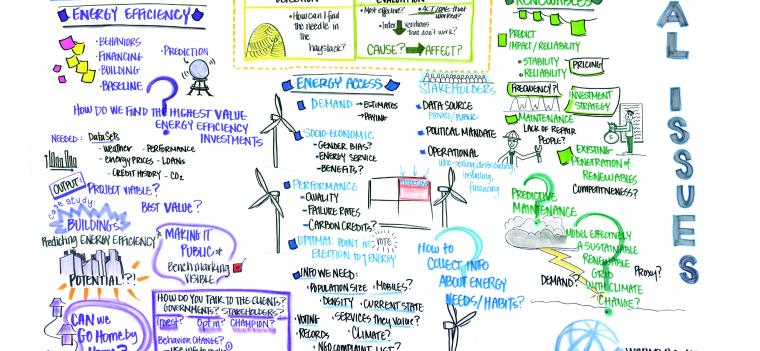 ENERGY EFFICIENCY
• BEHAVIORS
• FINANCING
• BUILDING
• BASELINE
• PREDICTION
HOW DO WE FIND THE HIGHEST VALUE
ENERGY EFFICIENCY
INVESTMENTS
NEEDED: DATA SETS
- WEATHER - PERFORMANCE
- ENERGY PRICES - LOANS
- CREDIT HISTORY - CO2
OUTPUT: PROJECT VIABLE?
BEST VALUE?
CASE STUDY:
BUILDINGS
PREDICTING ENERGY EFFICIENCY
POTENTIAL?!?
CAN WE
GO HOME by
MAKING IT
PUBLIC *
BENCHMARKING
VISIBLE
HOW DO YOU TALK TO THE CLIENTS?
GOVERNMENTS? STAKEHOLDERS?
INVEST? OPT IN? CHAMPION?
BEHAVIOR CHANGE?
• HOW CAN I FIND
THE NEEDLE IN
THE
HAYSTACK?
EVALUATION
• MOST EFFECTIVE? • ACTIONS THAT
WORKED?
• INTERVENTIONS
THAT DON'T WORK?
CAUSE? → AFFECT?
ENERGY ACCESS
DEMAND → ESTIMATES
→ PAYING
SOCIO-ECONOMIC
- GENDER BIAS?
- ENERGY SERVICE
- BENEFITS?
PERFORMANCE
- QUALITY
- FAILURE RATES
- CARBON CREDITS?
OPTIMAL POINT OF
ELECTION TO ENERGY
VOTE
INFO WE NEED:
• POPULATION SIZE • MOBILES?
• DENSITY • CURRENT STATE
• VOTING • SERVICES THEY VALUE?
RECORDS • CLIMATE?
• NGO COMPLAINT LIST?
STAKEHOLDERS
• DATA SOURCE
PRIVATE/PUBLIC
• POLITICAL MANDATE
• OPERATIONAL
WHO-SELLING, DISTRIBUTING,
INSTALLING,
FINANCING
HOW TO
COLLECT INFO
ABOUT ENERGY
NEEDS/HABITS?
RENEWABLES
PREDICT
IMPACT/RELIABILITY
• STABILITY
• RELIABILITY
PRICING
FREQUENCY?
INVESTMENT
STRATEGY
MAINTENANCE
LACK OF REPAIR
PEOPLE?
EXISTING
PENETRATION OF
RENEWABLES
COMPETITIVENESS?
PREDICTIVE
MAINTENANCE
MODEL EFFECTIVELY
A SUSTAINABLE
RENEWABLE
GRID
WITH CLIMATE
CHANGE?
DEMAND?
PROXY?
AL ISSUES